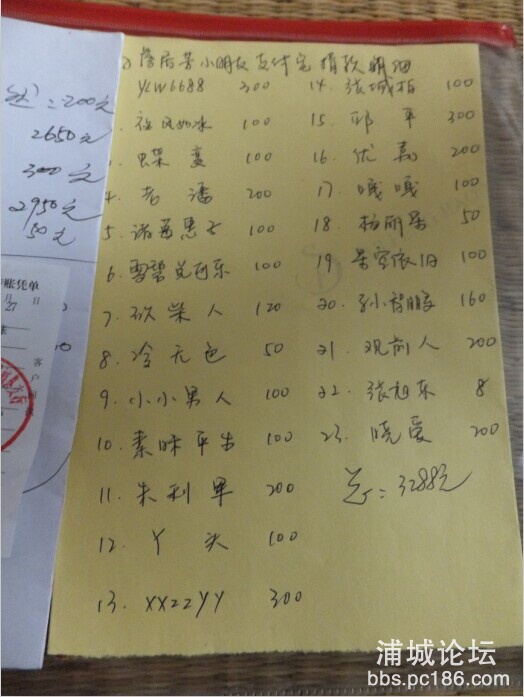 小朋友支付宝捐款明细
YLW6688 300
祖风如冰 100
蝶变 100
4. 老潘 200
5. 100
6. 雪碧兑可乐 100
7. 砍柴人 120
8. 冷无色 50
9. 小小男人 100
10. 素昧平生 100
11. 朱利军 200
12. 丫头 100
13. XXZZYY 300
14. 张城柏 100
15. 邱平 300
16. 优嘉 200
17. 嘎嘎 100
18. 杨丽 50
19. 依旧 100
20. 孙智鹏 160
21. 观前人 200
22. 张旭东 8
23. 晓爱 200
总:3288元
=200元
2650元
300元
2950元
50元
账凭单
月 日
27
客户
浦城论坛
bbs.pc186.com